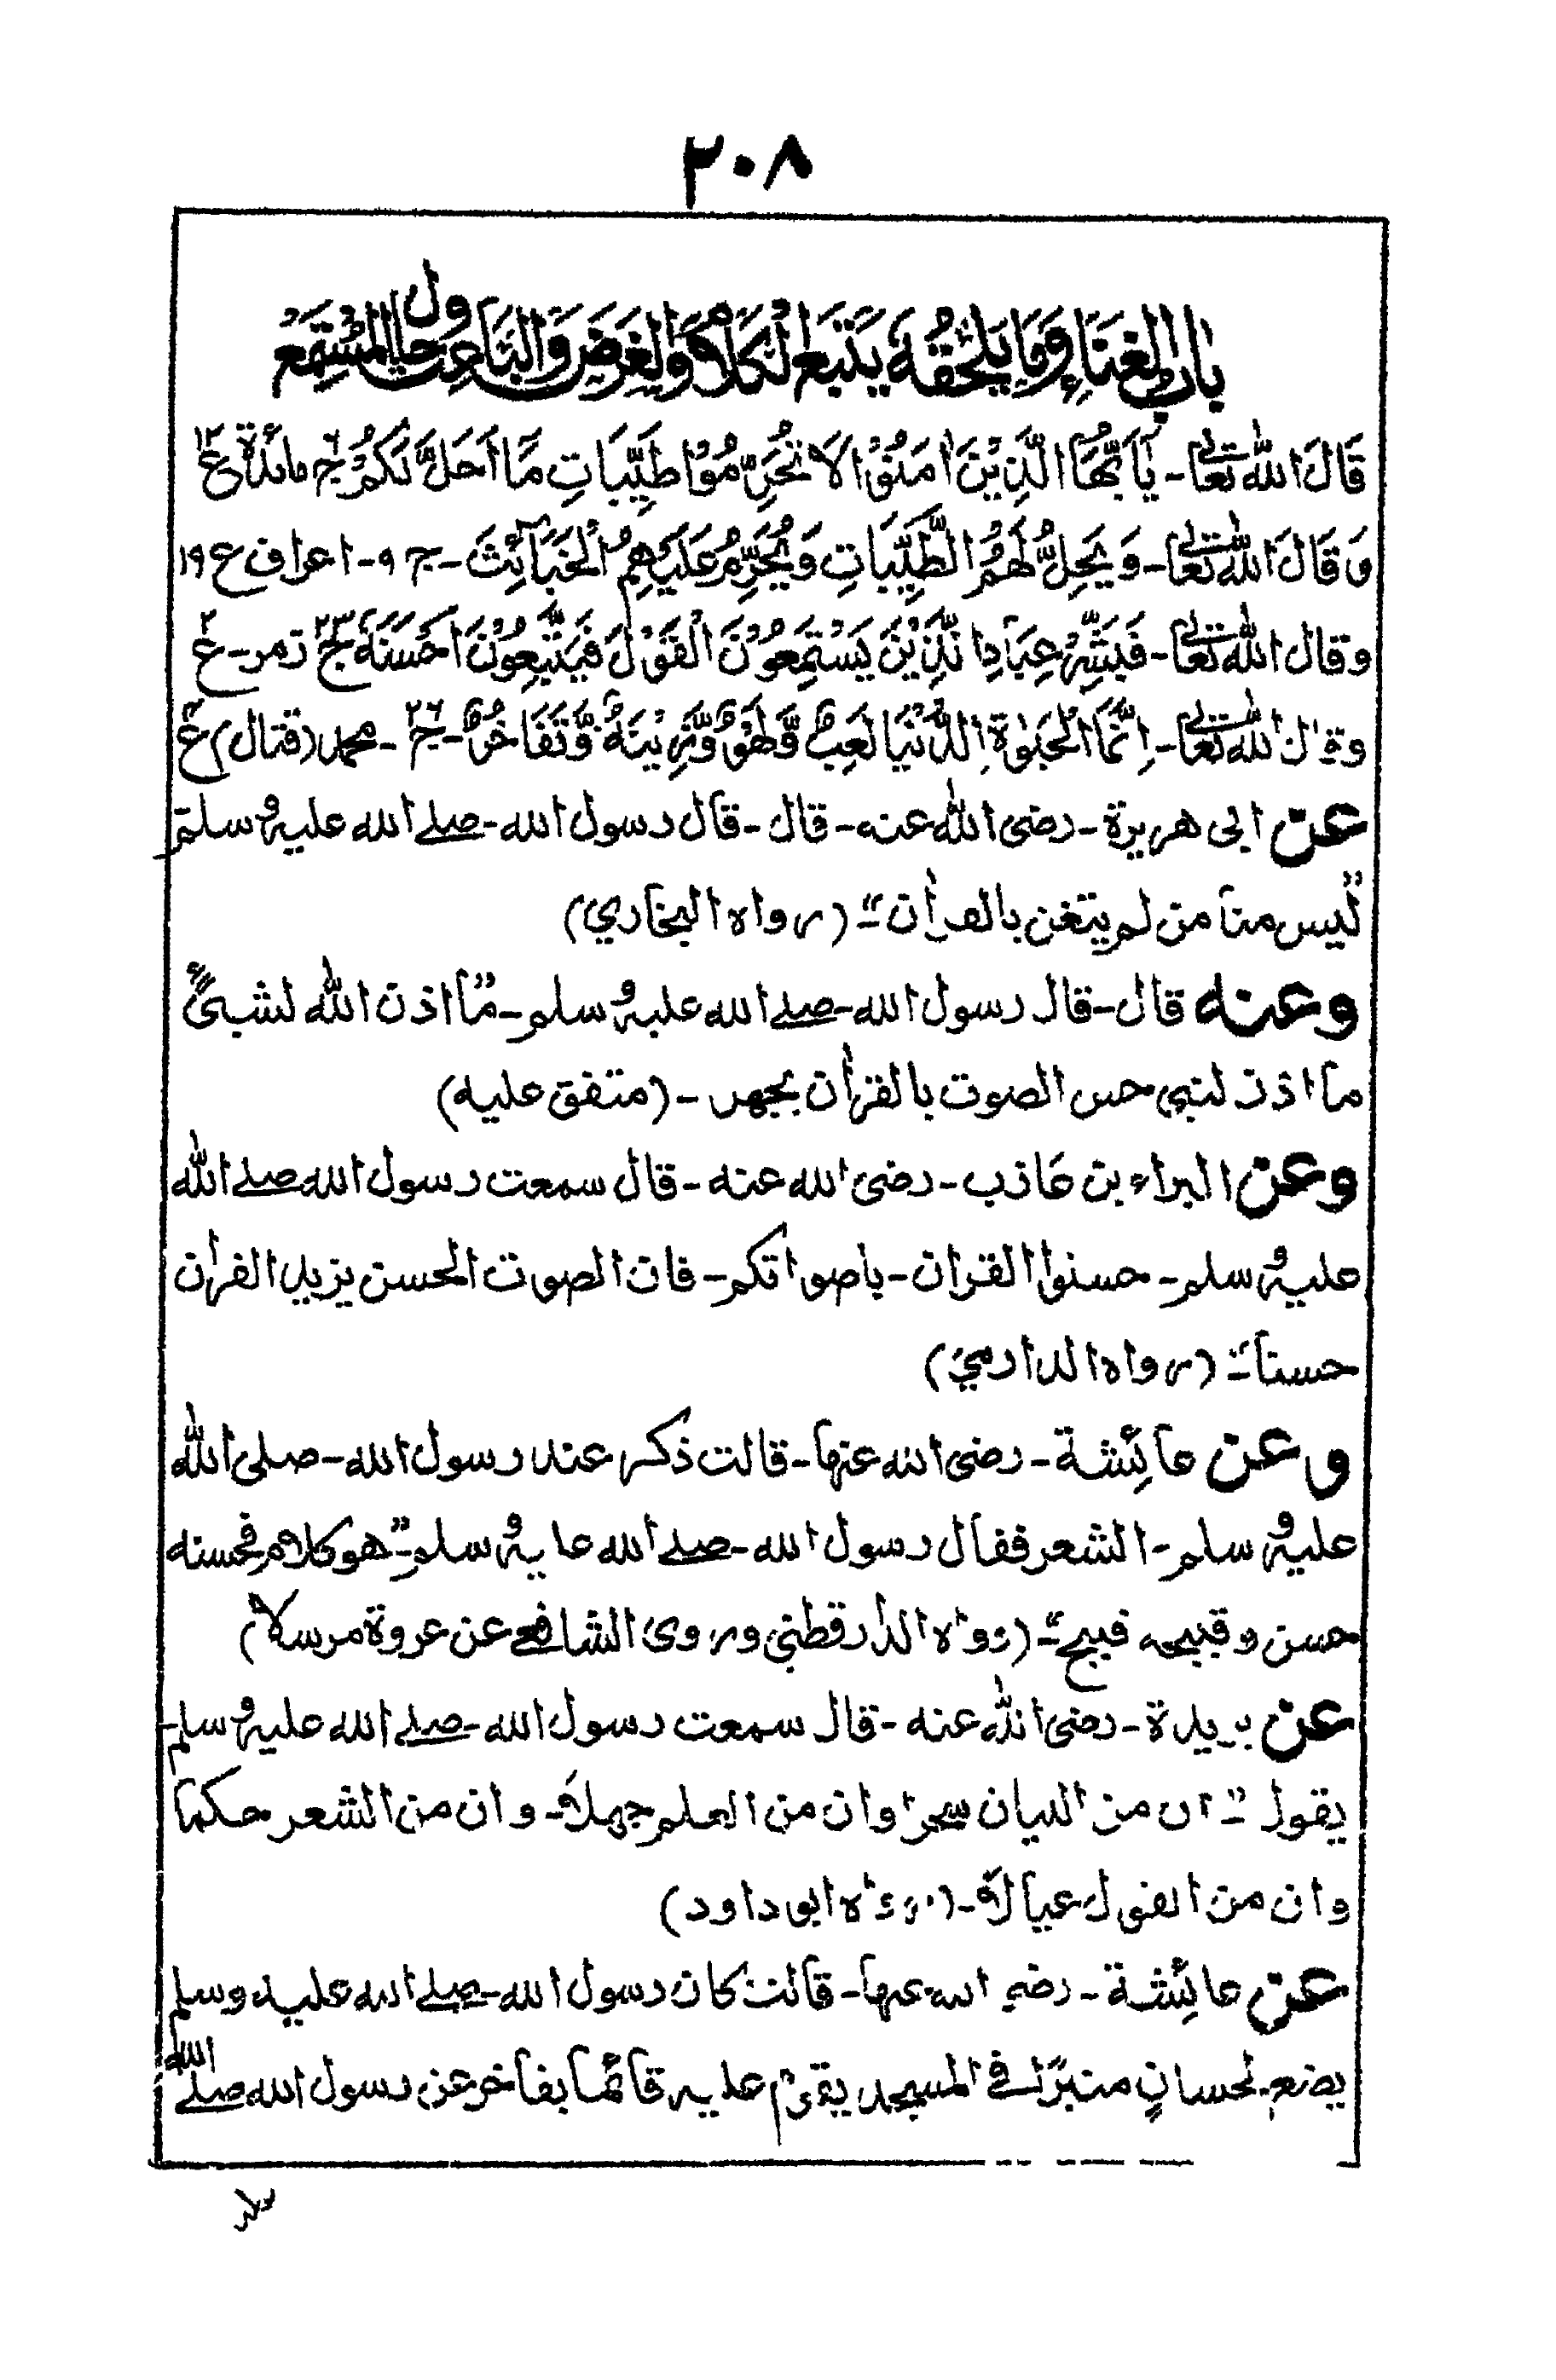 ٢٠٨
باب الغناء وما يلحقه يتبع الكلام والغرض والباعث وحال المستمع
قَالَ اللهُ تَعَالٰى - يٰاَيُّهَا الَّذِيْنَ اٰمَنُوْا لَا تُحَرِّمُوْا طَيِّبَاتِ مَا اَحَلَّ لَكُمْ ج ٦ مائدة ع ١٢
وَقَالَ اللهُ تَعَالٰى - وَيُحِلُّ لَهُمُ الطَّيِّبَاتِ وَيُحَرِّمُ عَلَيْهِمُ الْخَبَآئِثَ - ج ٩ - اعراف ع ١٩
وقال اللهُ تعالٰى - فَبَشِّرْ عِبَادِ الَّذِيْنَ يَسْتَمِعُوْنَ الْقَوْلَ فَيَتَّبِعُوْنَ اَحْسَنَهٗ ج ٢٣ زمر - ع ٢
وقال الله تعالٰى - اِنَّمَا الْحَيٰوةُ الدُّنْيَا لَعِبٌ وَّلَهْوٌ وَّزِيْنَةٌ وَّتَفَاخُرٌ - ج ٢٦ - محمد (قتال) ع ٤
عن ابى هريرة - رضى الله عنه - قال - قال رسول الله - صلے الله عليه وسلم
"ليس منا من لم يتغن بالقرأن" - (رواه البخاري)
وعنه قال - قال رسول الله - صلے الله عليه وسلم - "ما اذن الله لشىئٍ
ما اذن لنبي حسن الصوت بالقرأن يجهر - (متفق عليه)
وعن البراء بن عازب - رضى الله عنه - قال سمعت رسول الله صلے الله
عليه وسلم - حسنوا القران - باصواتكم - فان الصوت الحسن يزيد القرأن
حسنا" - (رواه الدارمي)
وعن عائشة - رضى الله عنها - قالت ذكر عند رسول الله - صلى الله
عليه وسلم - الشعر فقال رسول الله - صلے الله عليه وسلم - "هو كلام فحسنه
حسن وقبيحه قبيح" - (رواه الدارقطني وروى الشافعے عن عروة مرسلا)
عن بريدة - رضى الله عنه - قال سمعت رسول الله - صلے الله عليه وسلم -
يقول - "ان من البيان سحرا وان من العلم جهلا - وان من الشعر حكما
وان من القول عيالا - (رواه ابو داود)
عن عائشة - رضي الله عنها - قالت كان رسول الله - صلے الله عليه وسلم
يضع لحسانٍ منبرًا في المسجد يقوم عليه قائما يفاخر عن رسول الله صلے الله